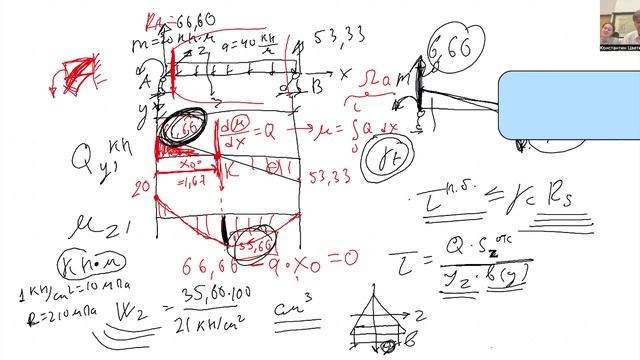 R_A=66,60
m=20 кн·м
2
q=40 кн/м
53,33
A
B
x
y
3
6,66
m
Ωa
Q_y, кн
66,66
d(M)/dx = Q → M = ∫Q dx
γt
x₀=
=1,67
K
20
53,33
M_z,
кн·м
35,66
66,66 - q·x₀ = 0
τ н.б. ≤ γc Rs
τ = Q·Sz отс / Yz·b(y)
1 кН/см²=10 мПа
R=210 мПа
W_z = 35,60·100 / 21 кН/см² см³
z
b
Константин Цвет